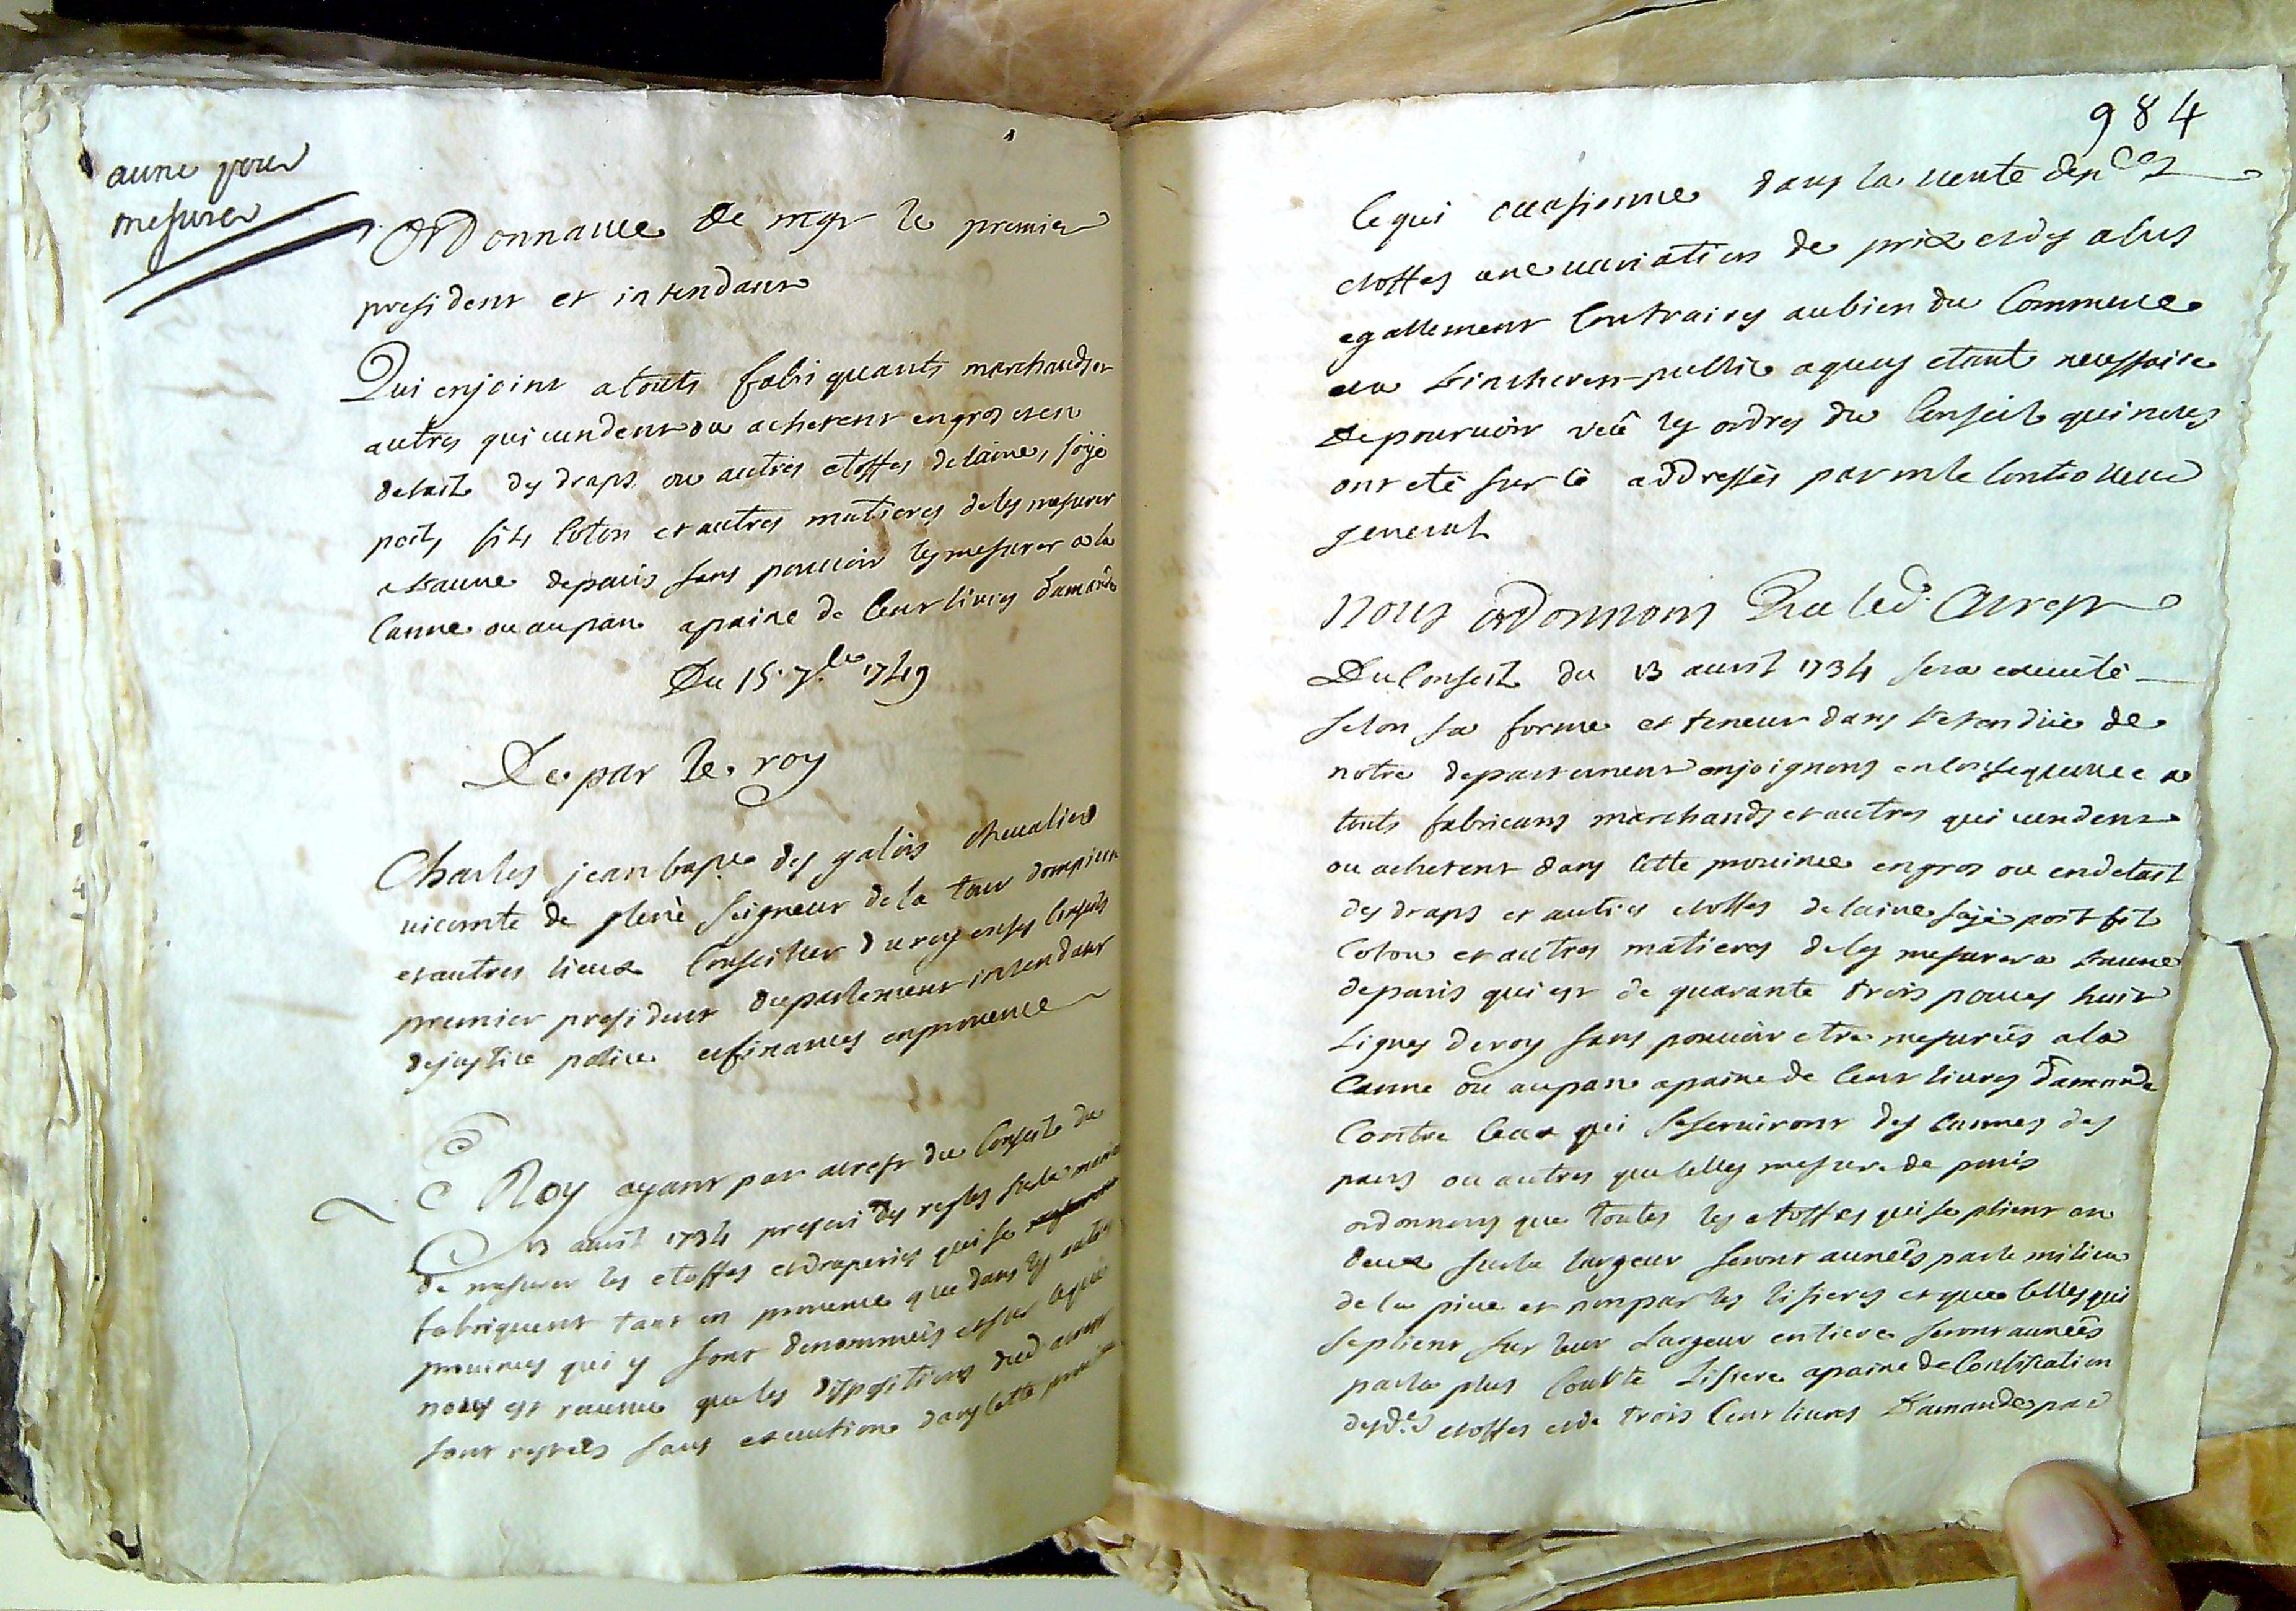 aune pour
mesurer
Ordonnance de mgr le premier
president et intendant
Qui enjoint a touts fabriquants marchands et
autres qui vendent ou achetent en gros et en
detail des draps ou autres etoffes de laine, soye
poil, fil, coton et autres matieres de les mesurer
a l'aune de paris sans pouvoir les mesurer a la
canne ou au pan a paine de cent livres d'amande
Du 15 7bre 1749
De par le roy
Charles jean bapte des galois chevalier
vicomte de glené seigneur de la tour dompierre
et autres lieux conseiller du roy en ses conseils
premier president du parlement intendant
de justice police et finances en provence
Le Roy ayant par arrest du conseil du
13 avril 1734 prescri des regles sur la maniere
de mesurer les etoffes et draperies qui se
fabriquent tant en provence que dans les autres
provinces qui y sont denommées et sur ce qui
nous est revenu que les dispositions dud arrest
sont restées sans execution dans cette province
984
ce qui occasionne dans la vente desd ces
etoffes une variation de prix et des abus
egallement contraires au bien du commerce
et a l'interest public a quoy etant necessaire
de pourvoir veû les ordres du conseil qui nous
ont eté sur cé addressés par mr le controlleur
general
Nous ordonnons Que led. arrest
du conseil du 13 avril 1734 sera executé
selon sa forme et teneur dans l'etendüe de
notre departement enjoignons en consequence a
touts fabricans marchands et autres qui vendent
ou achetent dans cette province en gros ou en detail
des draps et autres etoffes de laine soye poil fil
coton et autres matieres de les mesurer a l'aune
de paris qui est de quarante trois pouces huit
lignes de roy sans pouvoir etre mesurées a la
canne ou au pan a paine de cent livres d'amande
contre ceux qui se serviront des cannes des
pans ou autres que celles mesure de paris
ordonnons que toutes les etoffes qui se plient en
deux sur la largeur seront aunées par le milieu
de la piece et non par les lisieres et que celles qui
se plient sur leur largeur entiere seront aunées
par la plus courte lisiere a paine de confiscation
desd.es etoffes et de trois cent livres d'amande par